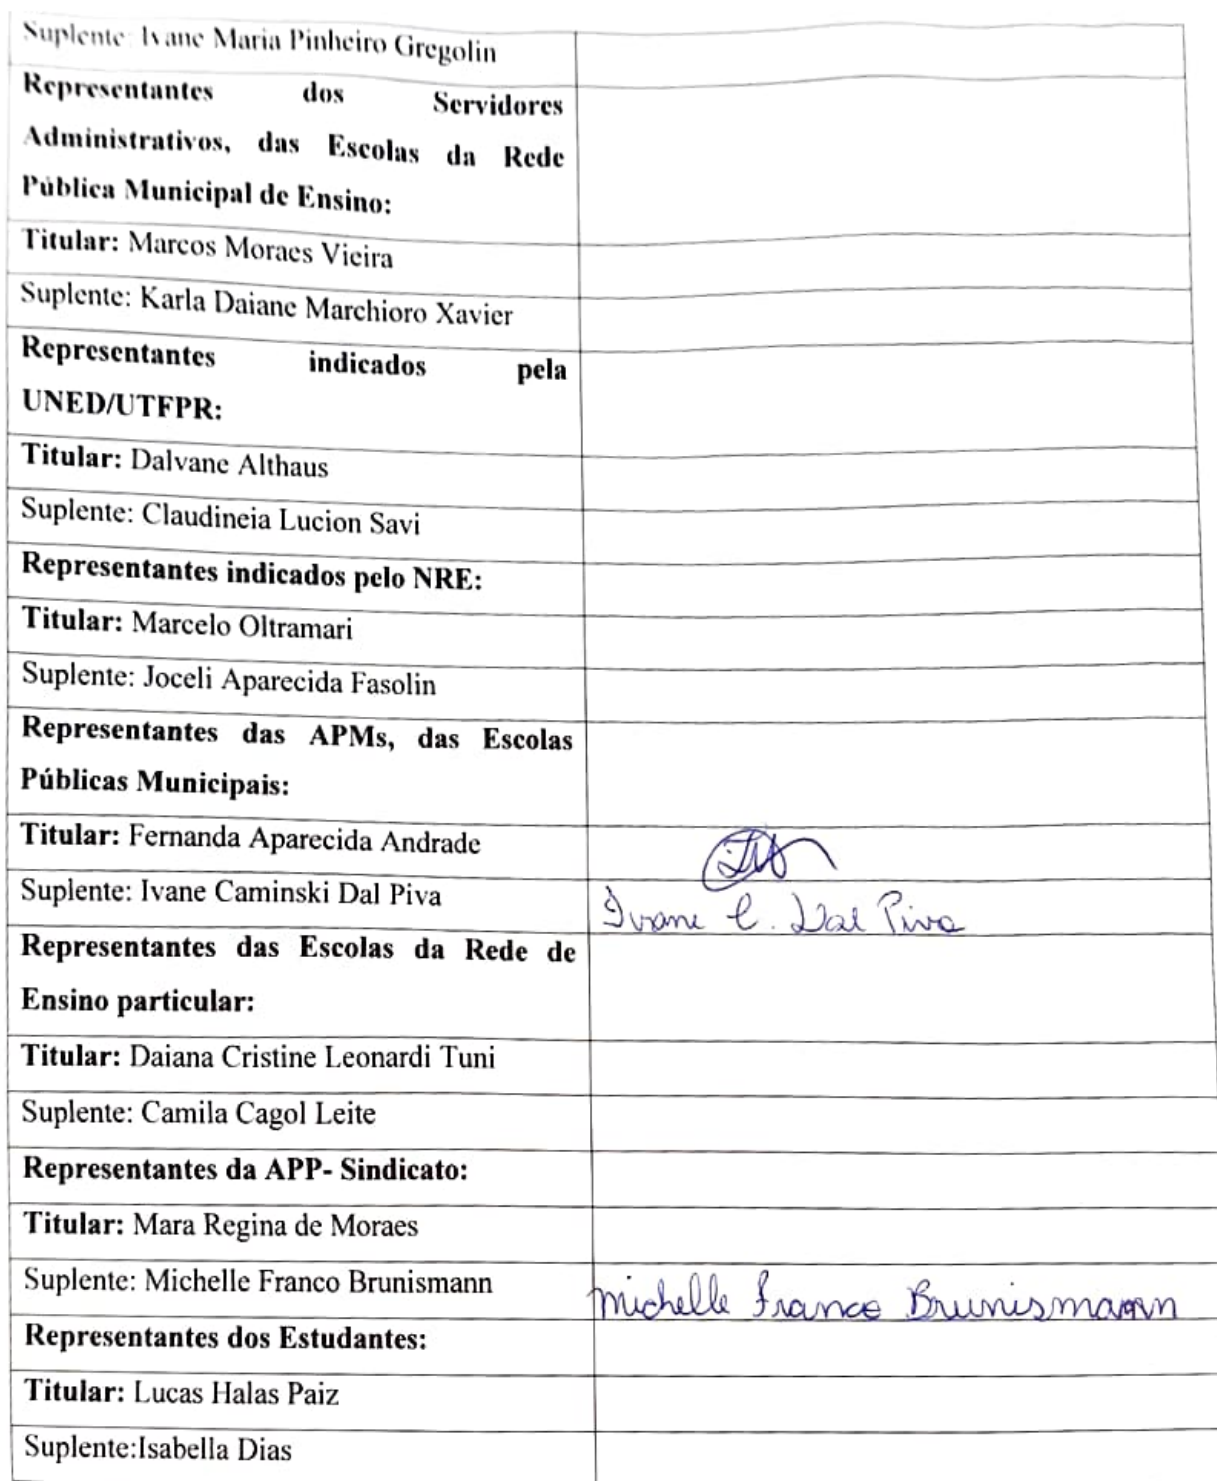 Suplente: Ivane Maria Pinheiro Gregolin
Representantes dos Servidores
Administrativos, das Escolas da Rede
Pública Municipal de Ensino:
Titular: Marcos Moraes Vieira
Suplente: Karla Daiane Marchioro Xavier
Representantes indicados pela
UNED/UTFPR:
Titular: Dalvane Althaus
Suplente: Claudineia Lucion Savi
Representantes indicados pelo NRE:
Titular: Marcelo Oltramari
Suplente: Joceli Aparecida Fasolin
Representantes das APMs, das Escolas
Públicas Municipais:
Titular: Fernanda Aparecida Andrade
Suplente: Ivane Caminski Dal Piva
Ivane C. Dal Piva
Representantes das Escolas da Rede de
Ensino particular:
Titular: Daiana Cristine Leonardi Tuni
Suplente: Camila Cagol Leite
Representantes da APP- Sindicato:
Titular: Mara Regina de Moraes
Suplente: Michelle Franco Brunismann
Michelle Franco Brunismann
Representantes dos Estudantes:
Titular: Lucas Halas Paiz
Suplente:Isabella Dias